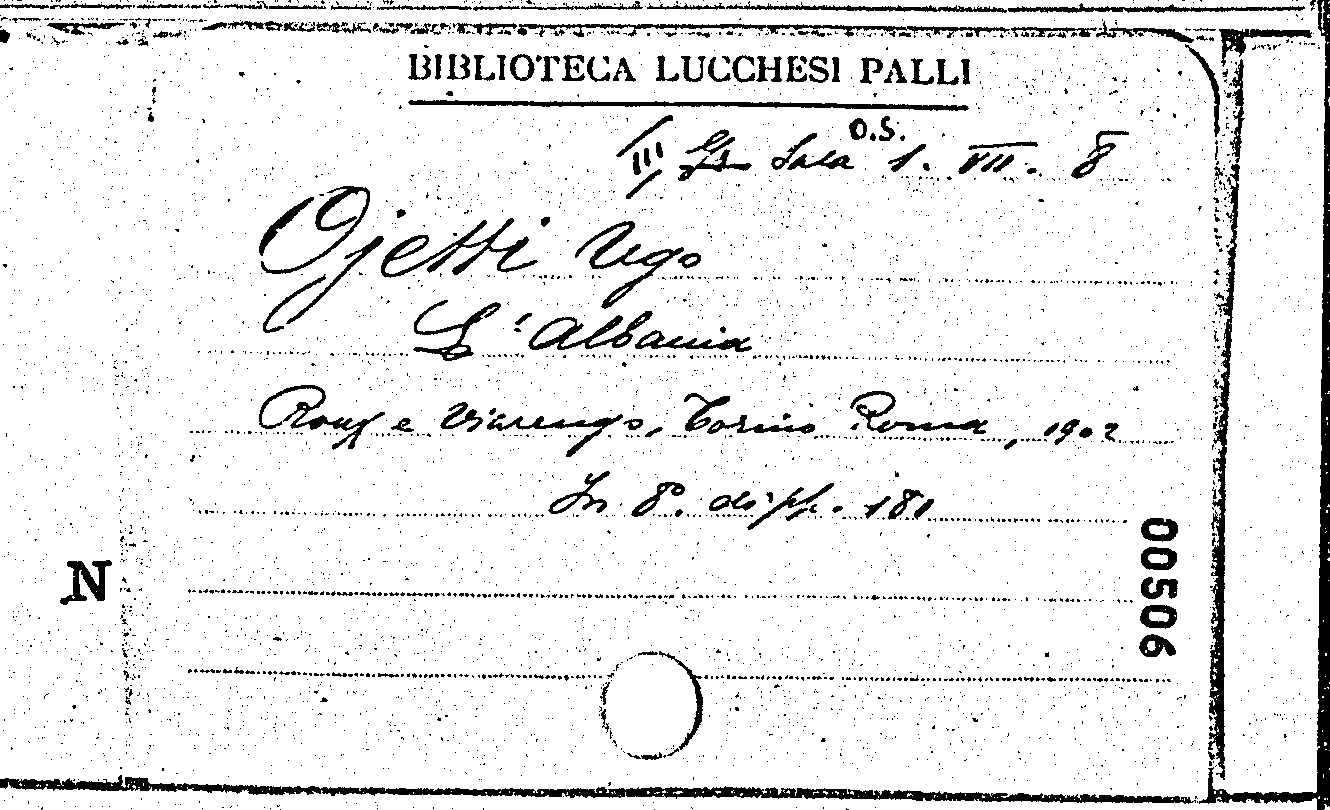 BIBLIOTECA LUCCHESI PALLI
O.S.
III Sala 1. VII. 8
Ojetti Ugo
L'Albania
Roux e Viarengo, Torino Roma, 1902
In 8°. di pp. 181
00506
N